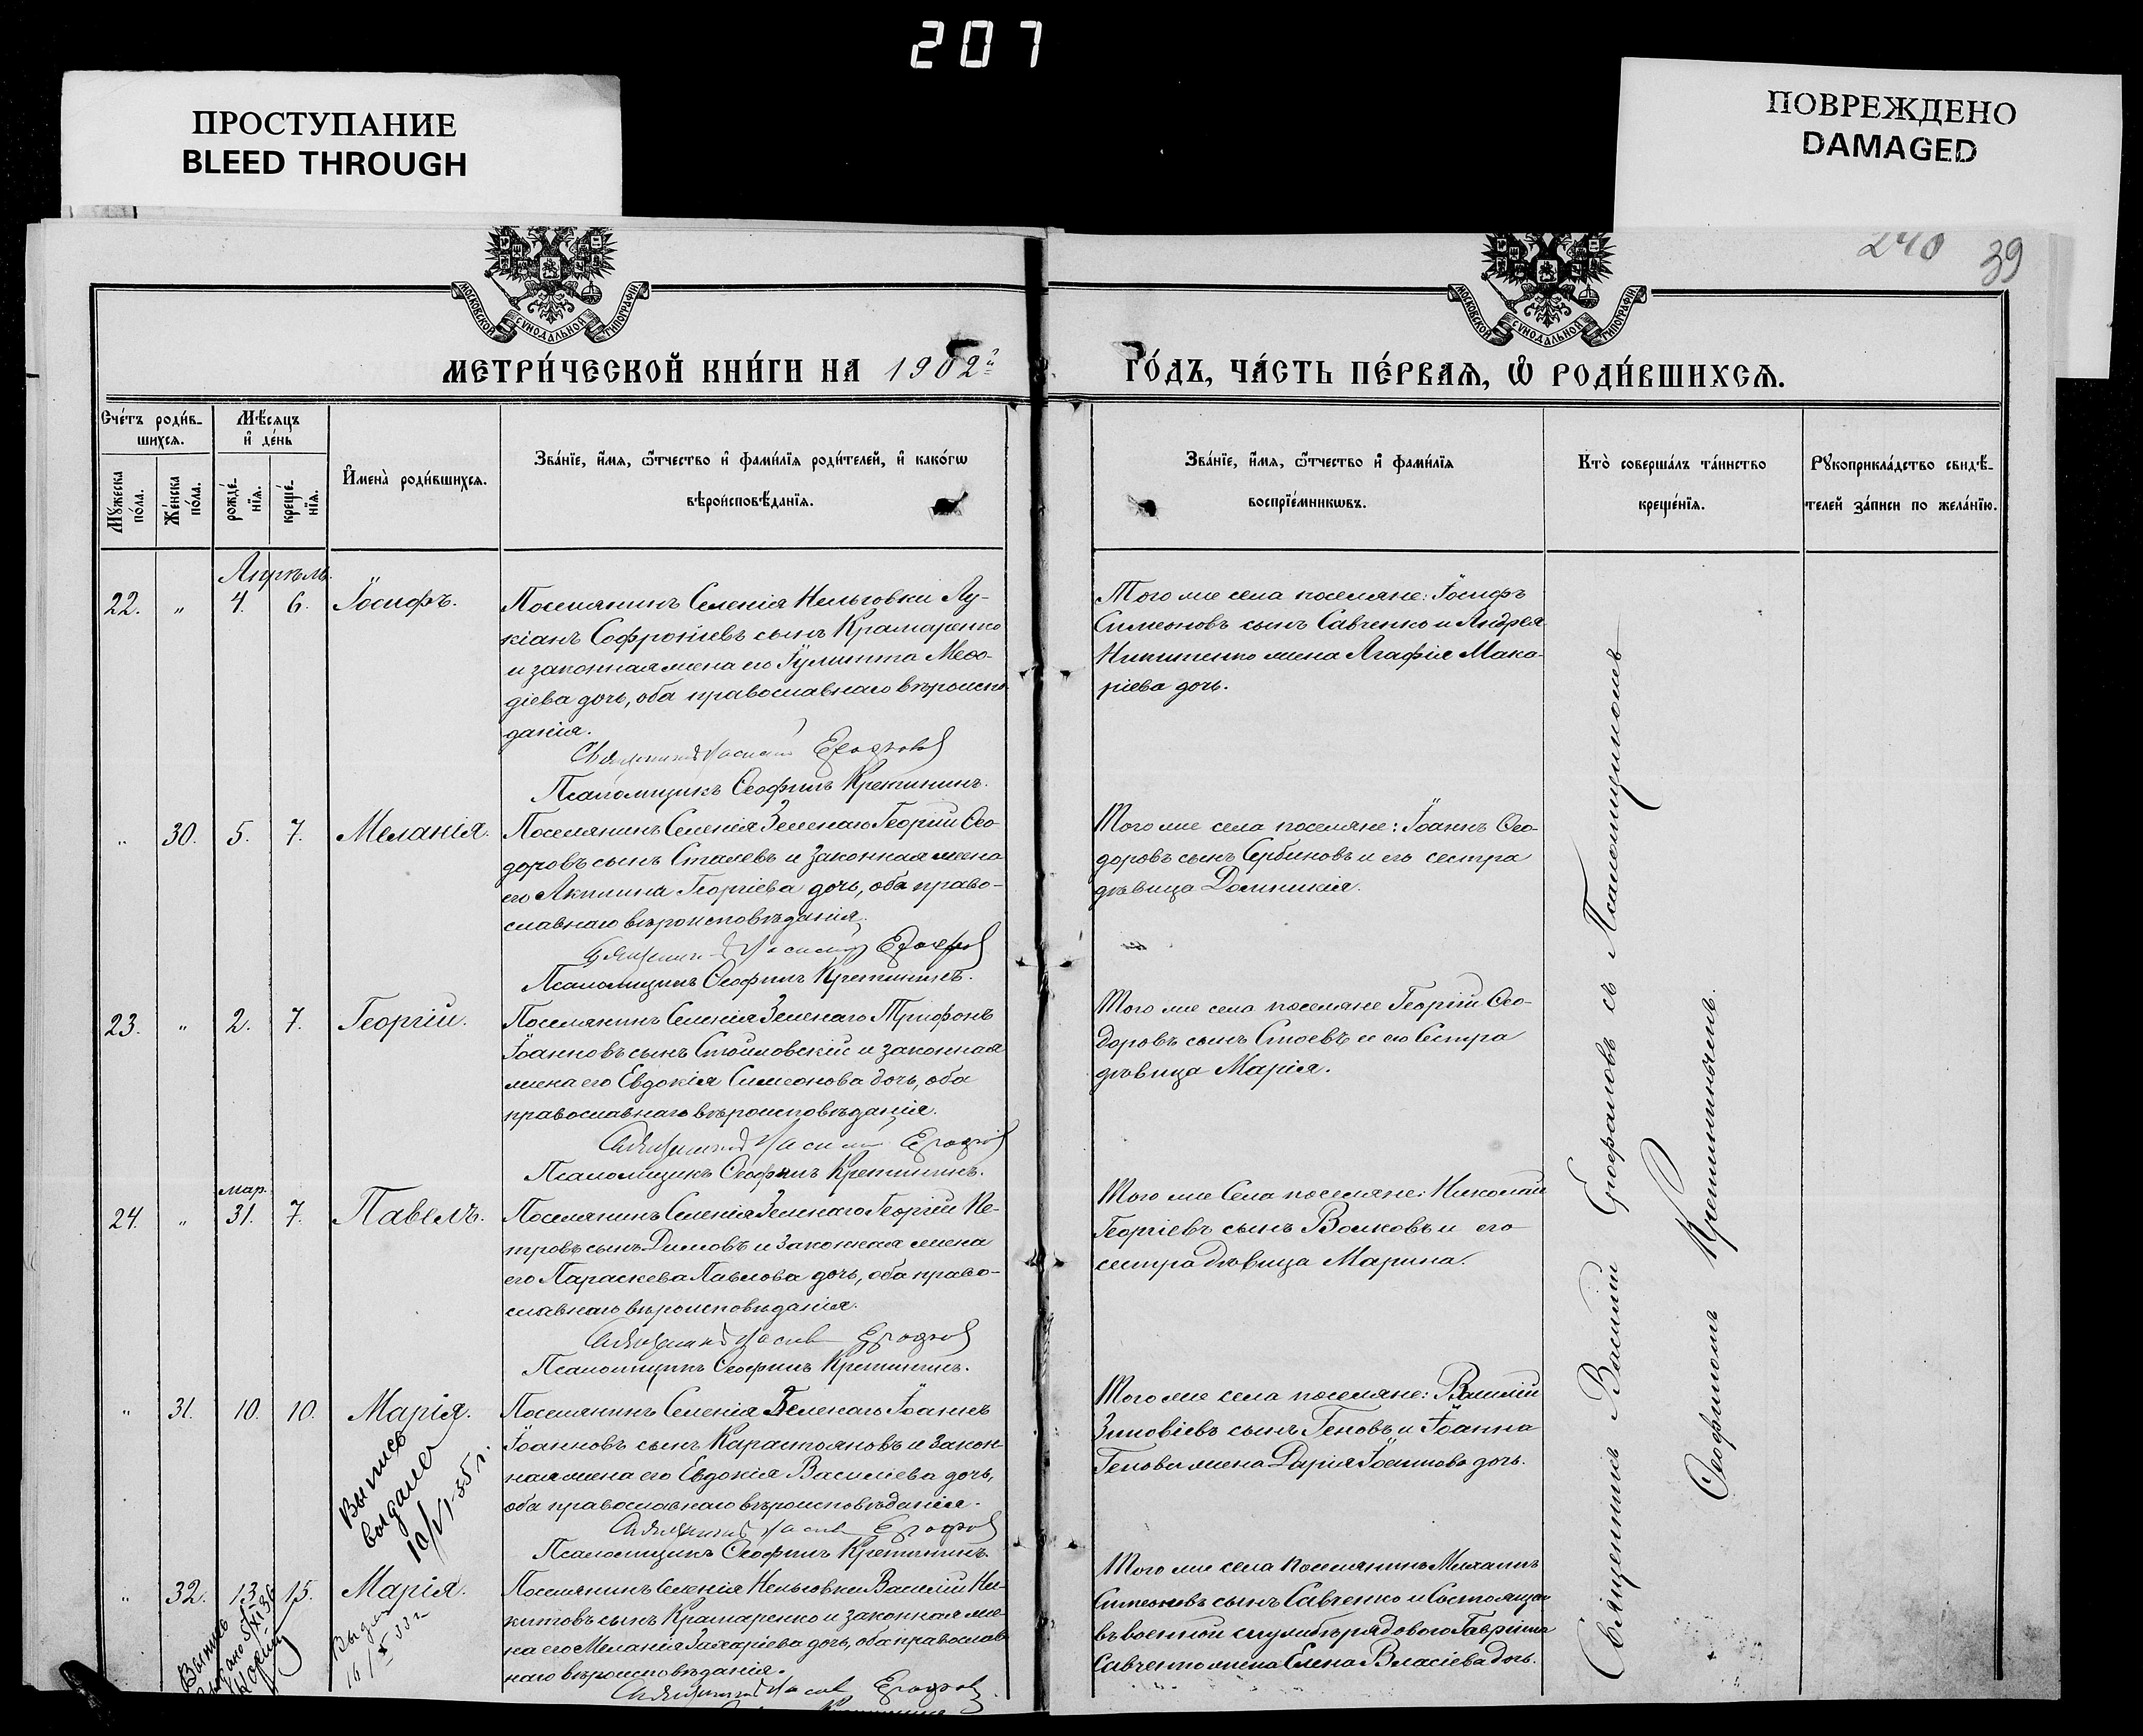 207
ПРОСТУПАНИЕ
BLEED THROUGH
ПОВРЕЖДЕНО
DAMAGED
240 39
МОСКОВСКОЙ СѴНОДАЛЬНОЙ ТИПОГРАФІИ
МОСКОВСКОЙ СѴНОДАЛЬНОЙ ТИПОГРАФІИ
МЕТРИ́ЧЕСКОЙ КНИ́ГИ НА 1902й ГО́ДЪ, ЧА́СТЬ ПЕ́РВАѦ, Ѡ҆ РОДИ́ВШИХСѦ.
Сче́тъ роди́в-
шихсѧ.
Мѣ́сѧцъ
и҆ де́нь
Мꙋ́жеска
по́ла.
Же́нска
по́ла.
рожде́-
нїѧ.
креще́-
нїѧ.
И҆мена̀ роди́вшихсѧ.
Зва́нїе, и҆́мѧ, ѻ҆́тчество и҆ фами́лїѧ роди́телей, и҆ како́гѡ
вѣроисповѣ́данїѧ.
Зва́нїе, и҆́мѧ, ѻ҆́тчество и҆ фами́лїѧ
воспрїе́мникѡвъ.
Кто̀ соверша́лъ та́инство
креще́нїѧ.
Рꙋкоприкла́дство свидѣ́-
телей за́писи по жела́нїю.
Апрѣль.
22. „ 4. 6. Іосифъ.
Поселянинъ Селенія Нельговки Лу-
кіанъ Софроніевъ сынъ Крамаренко
и законная жена его Іулитта Меѳо-
діева дочь, оба православнаго вѣроиспо-
данія.
Священникъ Василій Ерофаловъ
Псаломщикъ Ѳеофилъ Кретининъ.
Того же села поселяне: Іосифъ
Симеоновъ сынъ Савченко и Андрея
Никитенко жена Агафія Мака-
ріева дочь.
„ 30. 5. 7. Меланія.
Поселянинъ Селенія Зеленаго Георгій Ѳео-
доровъ сынъ Сталевъ и законная жена
его Акилина Георгіева дочь, оба право-
славнаго вѣроисповѣданія.
Священникъ Василій Ерофаловъ
Псаломщикъ Ѳеофилъ Кретининъ.
Того же села поселяне: Іоаннъ Ѳео-
доровъ сынъ Сербиновъ и его сестра
дѣвица Домникія.
23. „ 2. 7. Георгій.
Поселянинъ Селенія Зеленаго Трифонъ
Іоанновъ сынъ Стоиловскій и законная
жена его Евдокія Симеонова дочь, оба
православнаго вѣроисповѣданія.
Священникъ Василій Ерофаловъ
Псаломщикъ Ѳеофилъ Кретининъ.
Того же села поселяне Георгій Ѳео-
доровъ сынъ Стоевъ и его Сестра
дѣвица Марія.
мар.
24. „ 31. 7. Павелъ.
Поселянинъ Селенія Зеленаго Георгій Пе-
тровъ сынъ Димовъ и Законная жена
его Параскева Павлова дочь, оба право-
славнаго вѣроисповѣданія.
Священникъ Василій Ерофаловъ
Псаломщикъ Ѳеофилъ Кретининъ.
Того же Села поселяне: Николай
Георгіевъ сынъ Волковъ и его
сестра дѣвица Марина.
„ 31. 10. 10. Марія.
Поселянинъ Селенія Зеленаго Іоаннъ
Іоанновъ сынъ Карастояновъ и Закон-
ная жена его Евдокія Василіева дочь,
оба православнаго вѣроисповѣданія.
Священникъ Василій Ерофаловъ
Псаломщикъ Ѳеофилъ Кретининъ.
Выпись
выдана
10/VI-35 г.
Того же села поселяне: Василій
Зиновіевъ сынъ Геновъ и Іоанна
Генова жена Дарія Іоаннова дочь.
„ 32. 13. 15. Марія.
Поселянинъ Селенія Нельговки Василій Ни-
китовъ сынъ Крамаренко и законная же-
на его Меланія Захаріева дочь, оба православ-
наго вѣроисповѣданія.
Священникъ Василій Ерофаловъ
Выпись
Того же села поселянинъ Михаилъ
Симеоновъ сынъ Савченко и Состоящаго
въ военной службѣ рядового Гавріила
Савченко жена Елена Власіева дочь.
Священникъ Василій Ерофаловъ съ Псаломщикомъ
Ѳеофиломъ Кретининымъ.